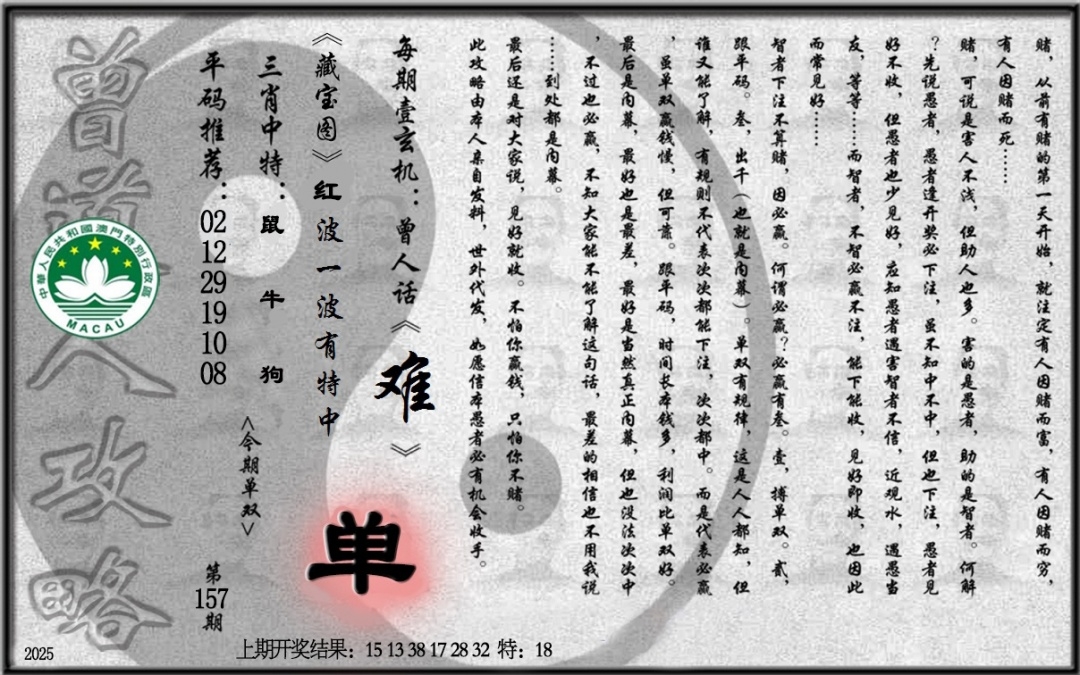 赌，从前有赌的第一天开始，就注定有人因赌而富，有人因赌而穷，
有人因赌而死……
赌，可说是害人不浅，但助人也多。害的是愚者，助的是智者。何解
？先说愚者，愚者逢开奖必下注，虽不知中不中，但也下注，愚者见
好不收，但愚者也少见好，应知愚者遇害智者不信，近观水，遇愚当
友，等等……而智者，不智必赢不注，能下能收，见好即收，也因此
而常见好……
智者下注不算赌，因必赢。何谓必赢？必赢有叁。壹，搏单双。贰，
跟平码。叁，出千（也就是内幕）。单双有规律，这是人人都知，但
谁又能了解，有规则不代表次次都能下注，次次都中。而是代表必赢
，虽单双赢钱慢，但可靠。跟平码，时间长本钱多，利润比单双好。
最后是内幕，最好也是最差，最好是当然真正内幕，但也没法次次中
，不过也必赢，不知大家能不能了解这句话，最差的相信也不用我说
……到处都是内幕。
最后还是对大家说，见好就收。不怕你赢钱，只怕你不赌。
此攻略由本人亲自发料，世外代发，如愿信本愚者必有机会收手。
每期壹玄机：曾人话《难》
《藏宝图》红波一波有特中
单
三肖中特：鼠牛狗
<今期单双>
平码推荐：02 12 29 19 10 08
第157期
曾道人攻略
中華人民共和國澳門特別行政區
MACAU
2025
上期开奖结果：15 13 38 17 28 32 特：18